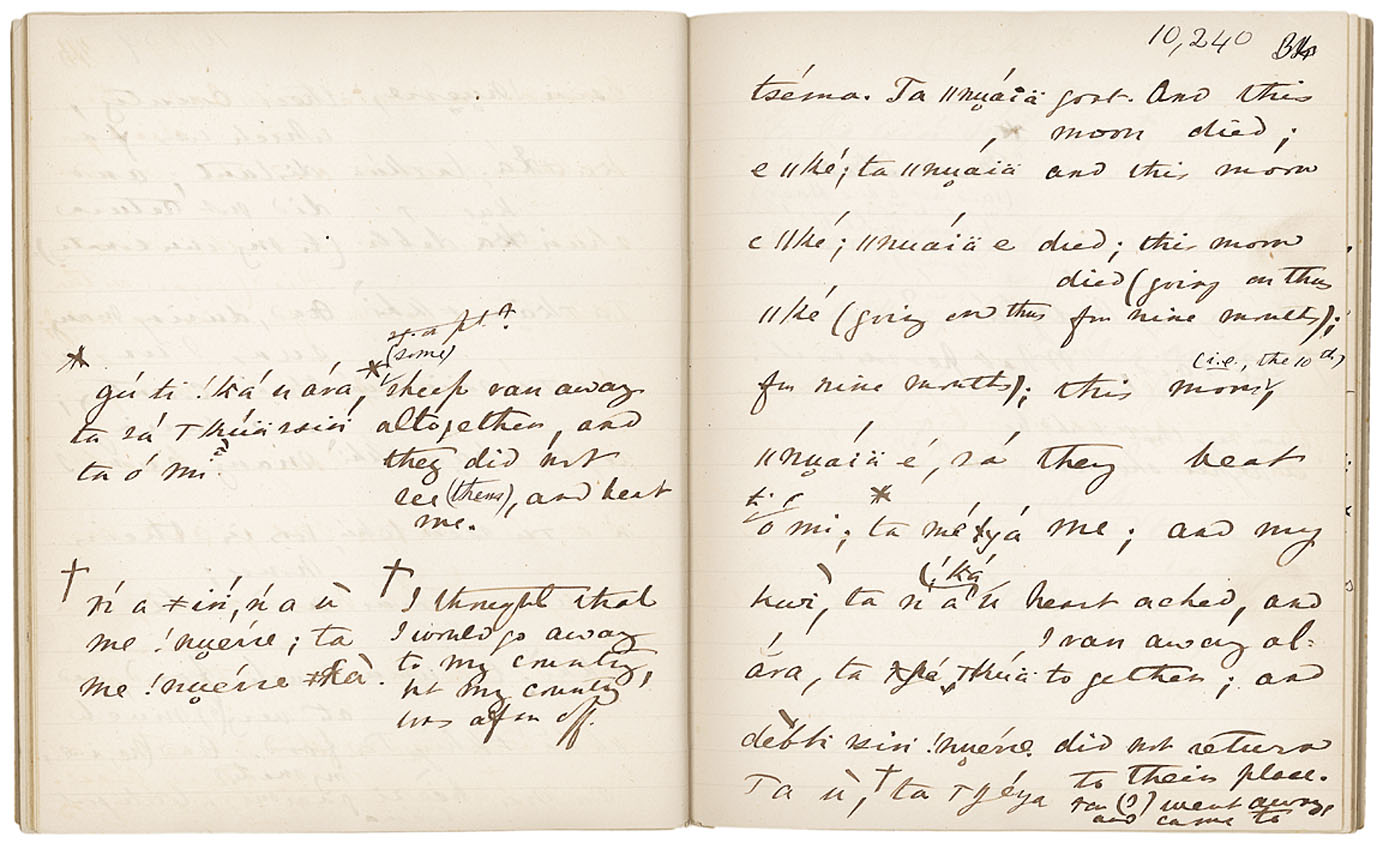 sg. or pl.?
(some)
* gú ti !ká ń ára, * sheep ran away
ta sá tkúä ssiń altogether, and
ta ó mi. they did not
see (them), and beat
me.
† ń a ≠iń, ń a ù † I thought that
me !nụérre; ta I would go away
me !nụérre ≠kà. to my country,
but my country
was afar off.
10,240
tséma. Ta ǁnụáiä goat. And this
moon died;
e ǁké; ta ǁnụáiä and this moon
e ǁké; ǁnụáiä e died; this moon
died (going on thus
ǁké (going on thus for nine months);
(i.e., the 10th)
for nine months); this moon,
ǁnụáiä é, sá they beat
ti é *
ó mi; ta mé me; and my
(!ká
ń á ń heart ached, and
I ran away al-
ára, ta tkúä together; and
ssiń !nụérre. did not return
to their place.
Ta ù, † ta ran (?) went away,
and came to